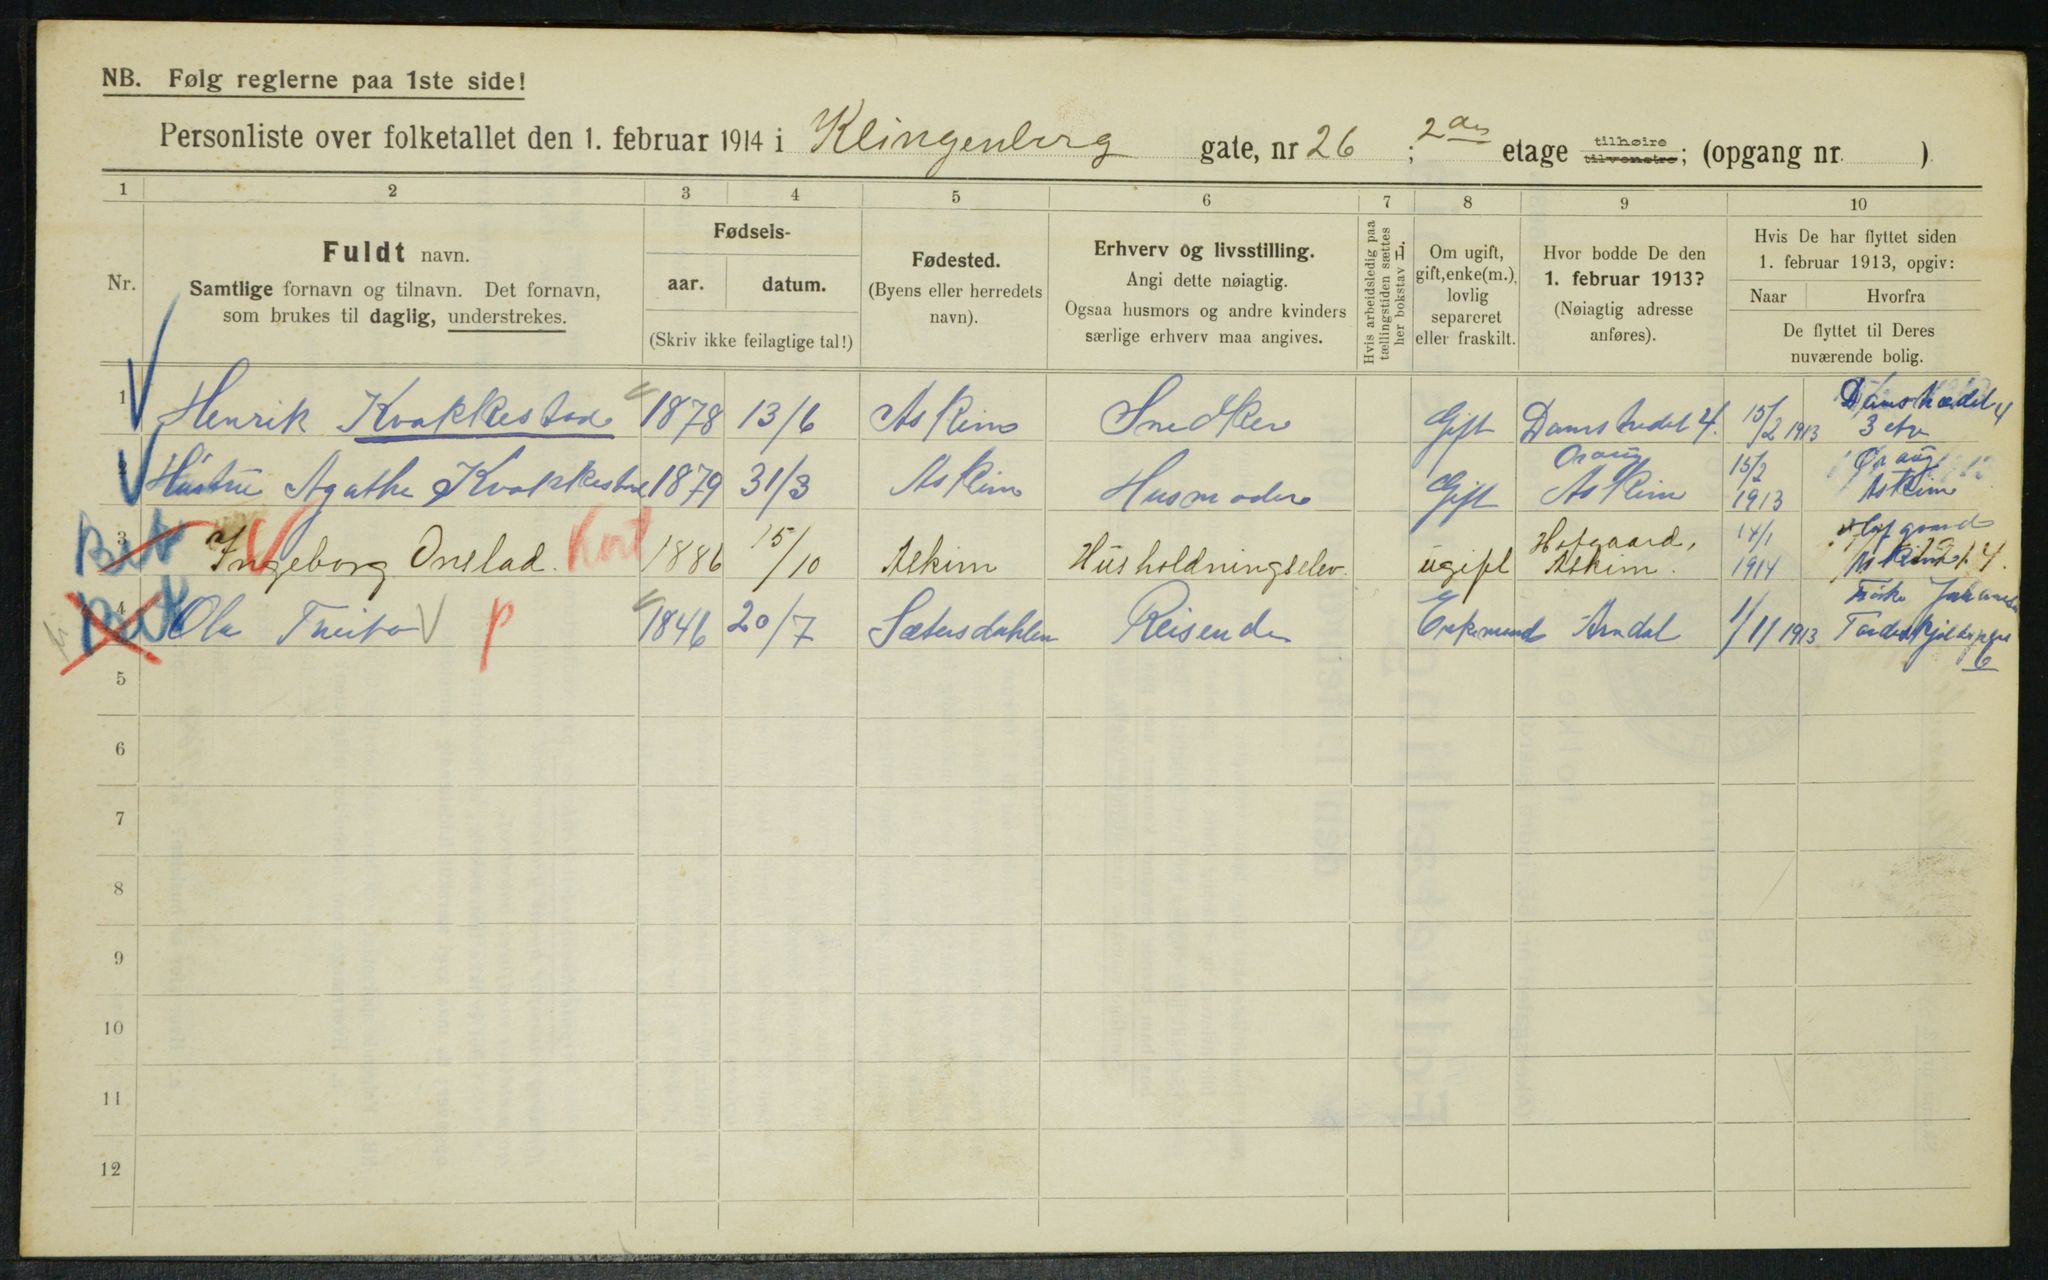 NB. Følg reglerne paa 1ste side!
Personliste over folketallet den 1. februar 1914 i Klingenberg gate, nr 26; 2den etage tilhøire tilvenstre; (opgang nr. )
1 2 3 4 5 6 7 8 9 10
Nr.
Fuldt navn.
Samtlige fornavn og tilnavn. Det fornavn,
som brukes til daglig, understrekes.
Fødsels-
aar. datum.
(Skriv ikke feilagtige tal!)
Fødested.
(Byens eller herredets
navn).
Erhverv og livsstilling.
Angi dette nøiagtig.
Ogsaa husmors og andre kvinders
særlige erhverv maa angives.
Hvis arbeidsledig paa
tællingstiden sættes
her bokstav L.
Om ugift,
gift, enke(m.),
lovlig
separeret
eller fraskilt.
Hvor bodde De den
1. februar 1913?
(Nøiagtig adresse
anføres).
Hvis De har flyttet siden
1. februar 1913, opgiv:
Naar Hvorfra
De flyttet til Deres
nuværende bolig.
1 Henrik Kvakkestad 1878 13/6 Askim Snedker Gift Damstredet 4. 15/2 1913 Damstrædet 4 3 etg
2 Hustru Agathe Kvakkestad 1879 31/3 Askim Husmoder Gift Oraug Askim 15/2 1913 Oraug Askim
3 Ingeborg Onstad. Kort 1886 15/10 Askim Husholdningselev. ugift Hofgaard, Askim. 14/1 1914 Hofgaard Askim
4 Ola p 1846 20/7 Sætersdahlen Reisende Enkemand Arndal 1/11 1913 6
5
6
7
8
9
10
11
12